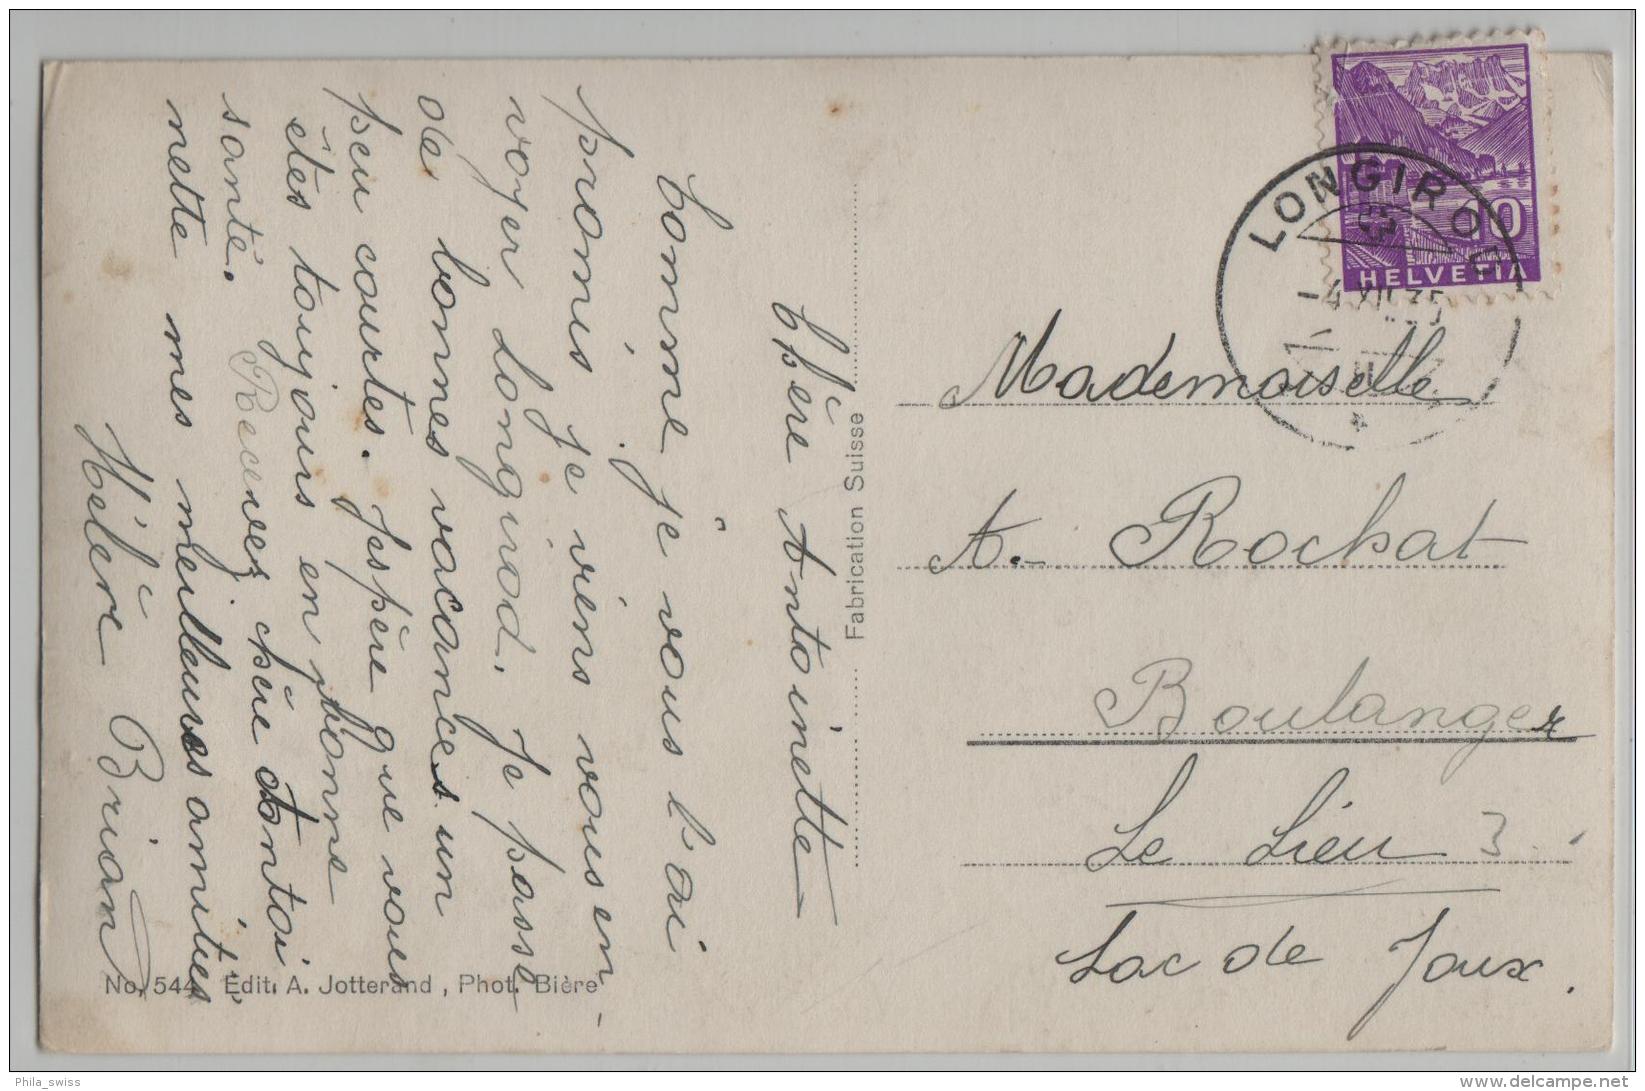 Chère Antoinette
Comme je vous l'ai
promis je viens vous en-
voyer Longirod. Je passe
de bonnes vacances un
peu courtes. J'espère que vous
êtes toujours en bonne
santé. Recevez chère Antoi-
nette mes meilleures amitiés
Hélène Brian
Fabrication Suisse
No. 544 Edit. A. Jotterand, Phot. Bière
10
HELVETIA
LONGIROD
Mademoiselle
A. Rochat
Boulanger
Le Lieu 3
Lac de Joux.
Phila_swiss
delcampe.net